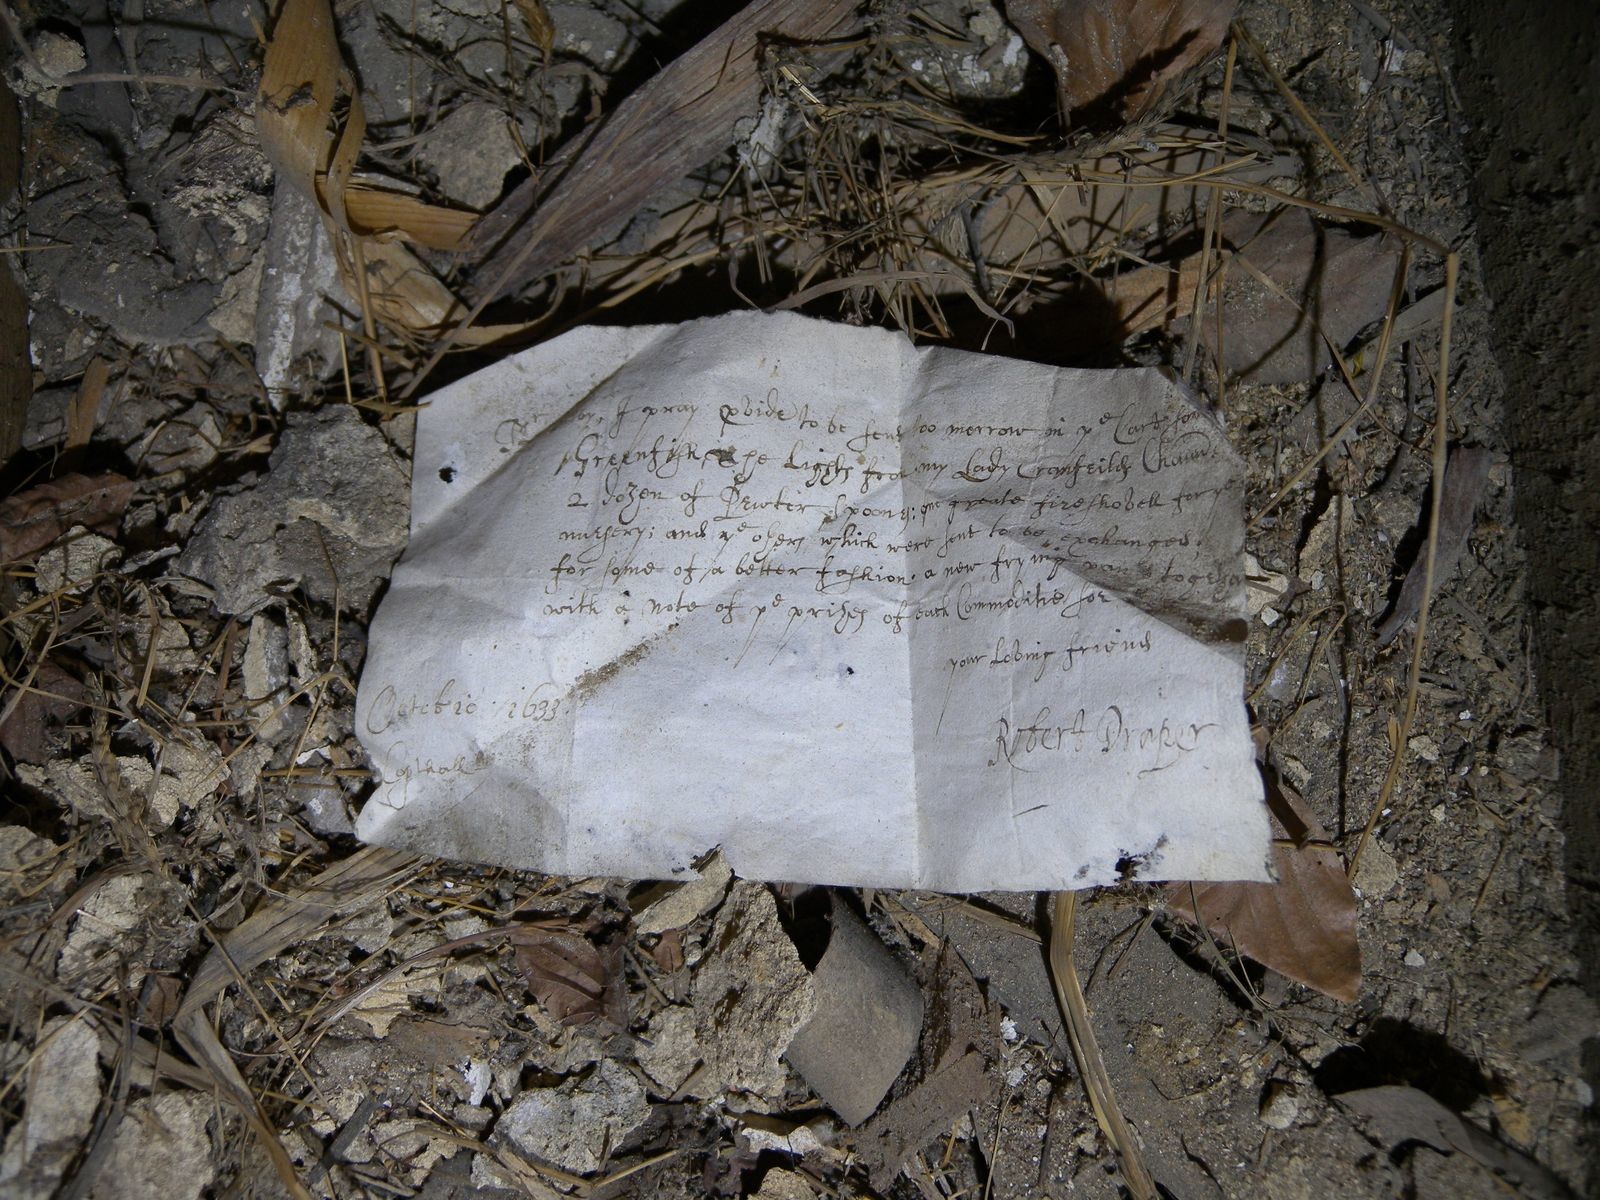 I pray pvide to be sent too morrow in ye Cart some
Greenfish, ye Lights from my Lady Cranfeilds Chamber
2 dozen of Pewter spoons: one greate fireshovell for ye
nursery; and ye others which were sent to be exchanged
for some of a better fashion. a new frying pan together
with a note of ye prises of each Commoditie for
your loving friend
Robert Draper
Octobr 1633
Copthall